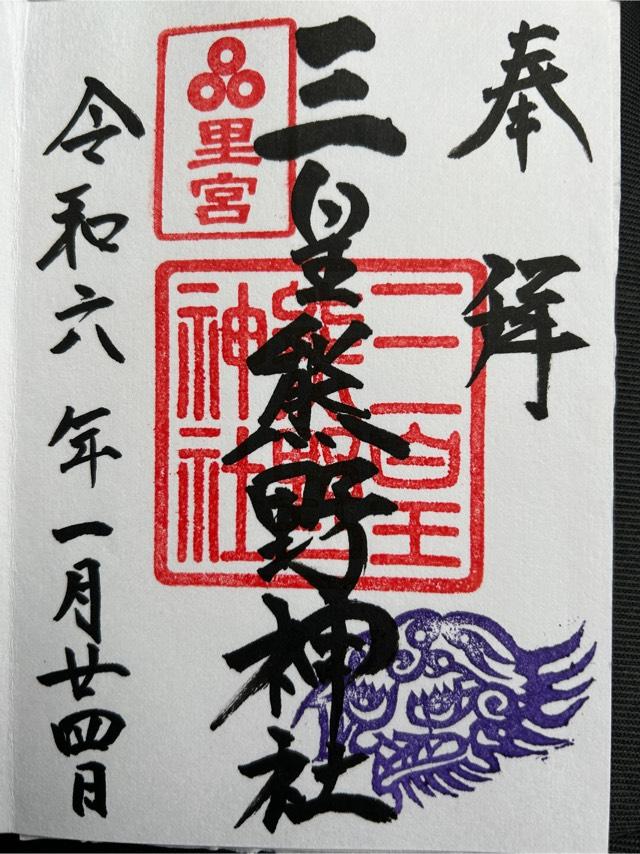 奉拝
三皇熊野神社
里宮
三皇熊野神社
令和六年一月廿四日